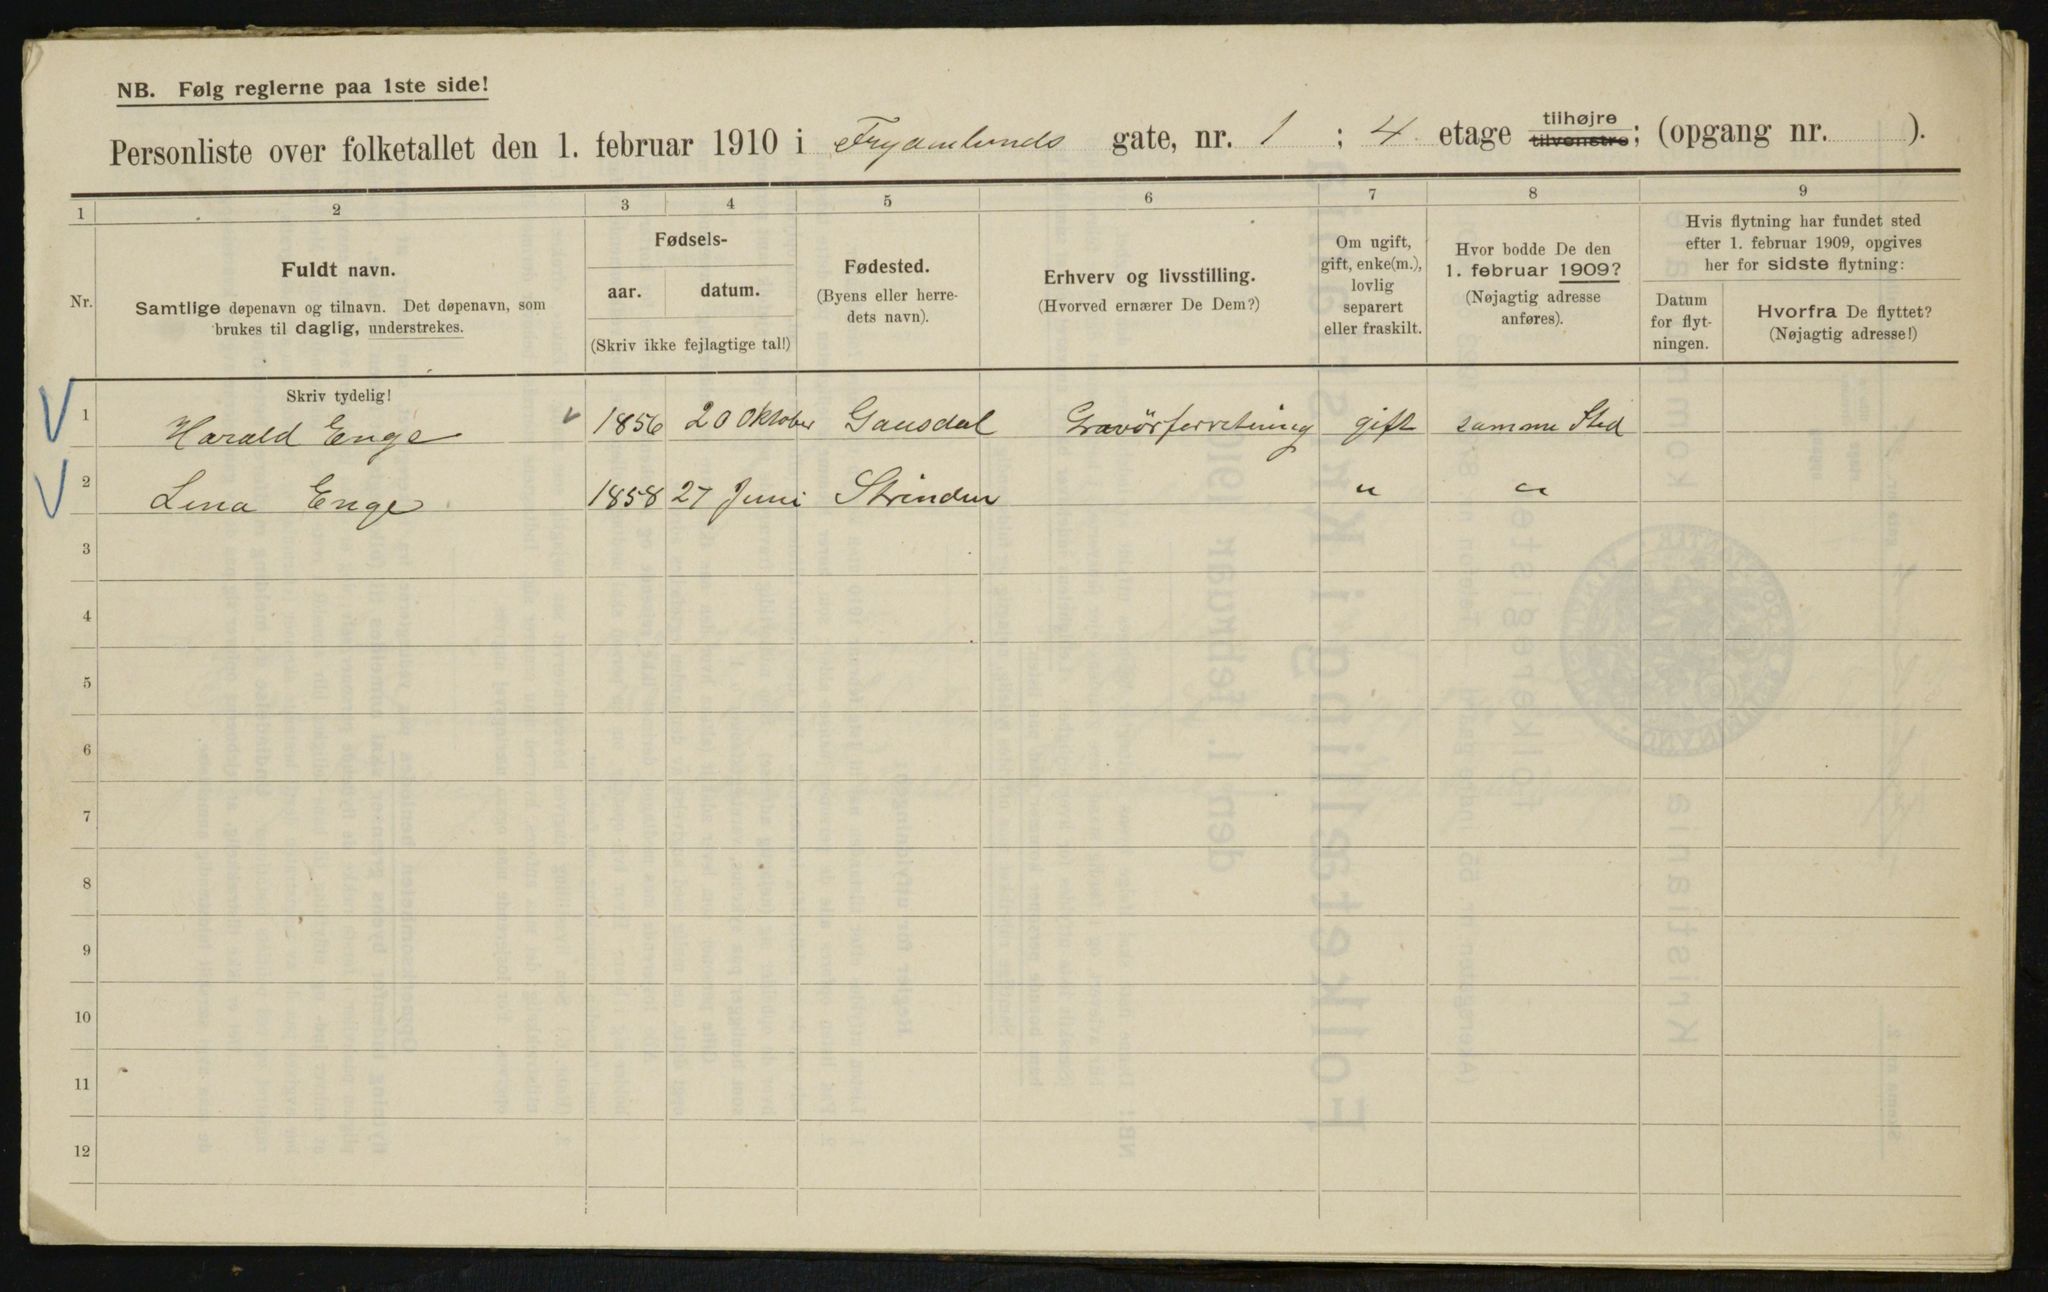 NB. Følg reglerne paa 1ste side!
Personliste over folketallet den 1. februar 1910 i Frydenlunds gate, nr. 1 ; 4 etage tilhøjre tilvenstre; (opgang nr. ).
1 2 3 4 5 6 7 8 9
Nr.
Fuldt navn.
Samtlige døpenavn og tilnavn. Det døpenavn, som
brukes til daglig, understrekes.
Fødsels-
aar. datum.
(Skriv ikke fejlagtige tal!)
Fødested.
(Byens eller herre-
dets navn).
Erhverv og livsstilling.
(Hvorved ernærer De Dem?)
Om ugift,
gift, enke(m.),
lovlig
separert
eller fraskilt.
Hvor bodde De den
1. februar 1909?
(Nøjagtig adresse
anføres).
Hvis flytning har fundet sted
efter 1. februar 1909, opgives
her for sidste flytning:
Datum
for flyt-
ningen.
Hvorfra De flyttet?
(Nøjagtig adresse!)
Skriv tydelig!
1 Harald Enge 1856 20 Oktober Gausdal Gravørforretning gift samme Sted
2 Lina Enge 1858 27 Juni Strinden " "
3
4
5
6
7
8
9
10
11
12